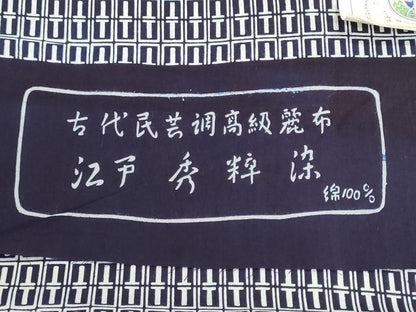 古代民芸调高級麗布
江戸 秀 粋 染
綿100%